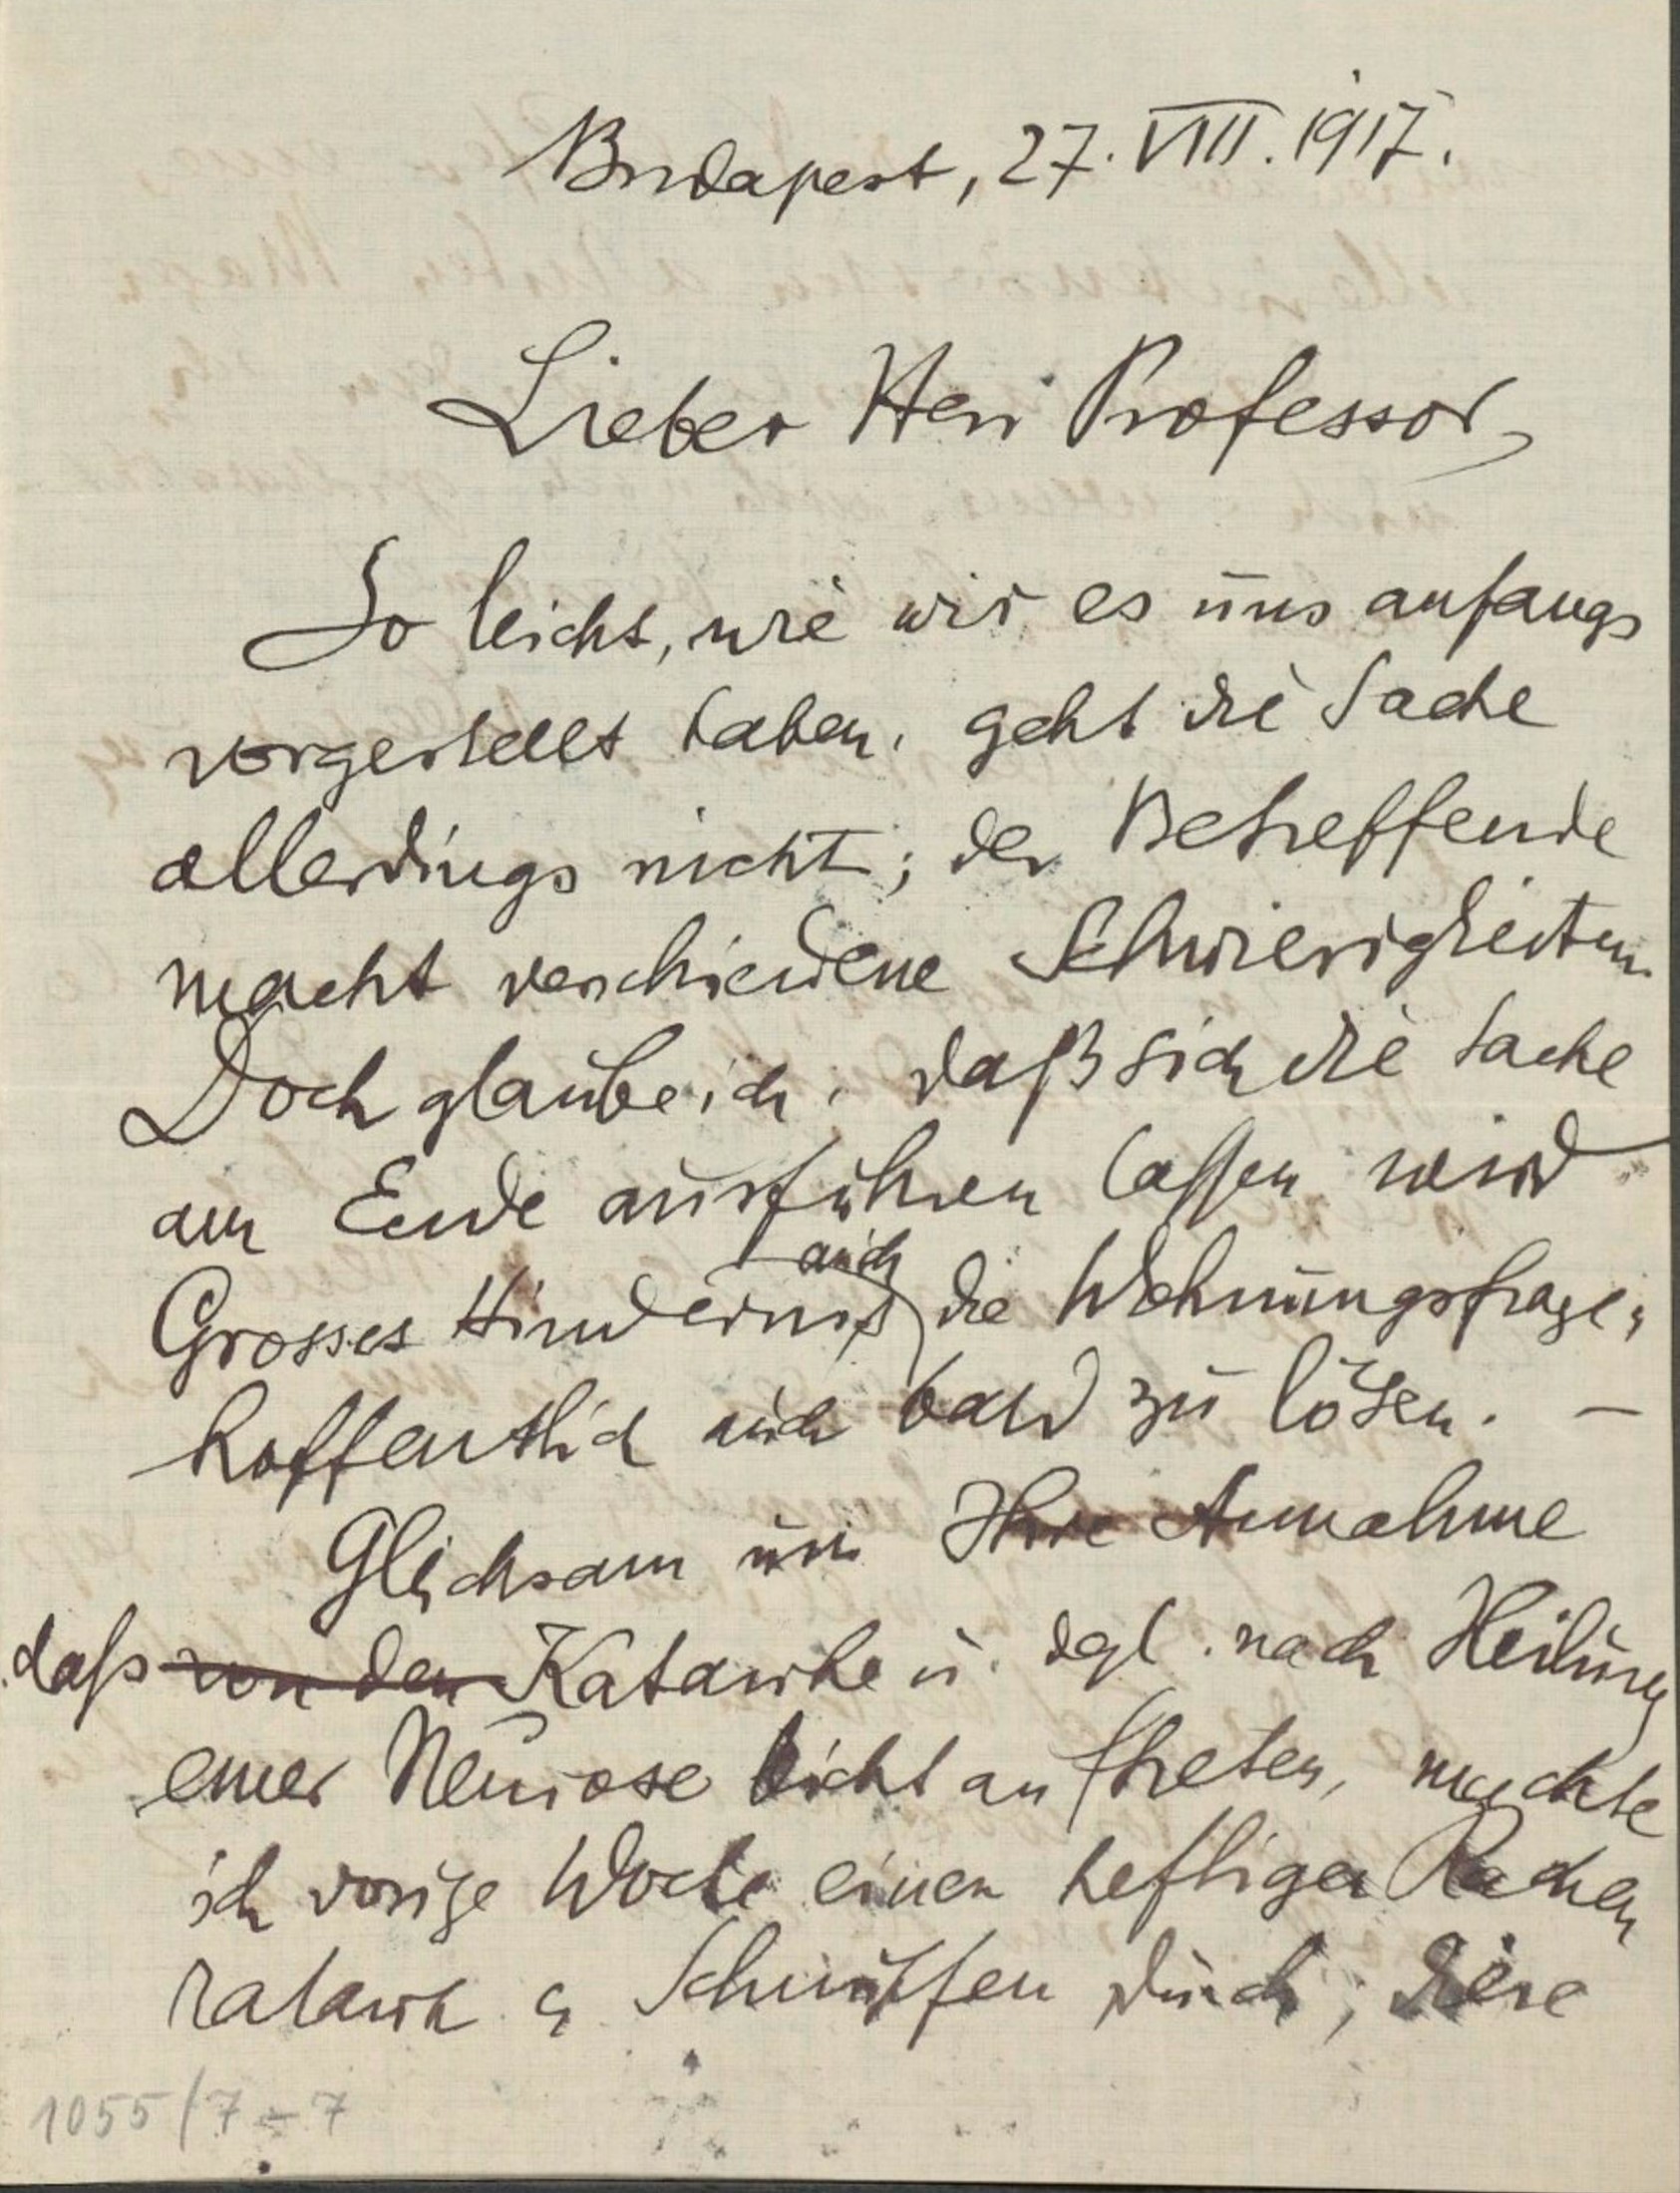 Budapest, 27. VIII. 1917.
Lieber Herr Professor,
So leicht, wie wir es uns anfangs
vorgestellt haben, geht die Sache
allerdings nicht; der Betreffende
macht verschiedene Schwierigkeiten.
Doch glaube ich, daß sich die Sache
am Ende ausführen lassen wird
auch
Grosses Hindernis die Wohnungsfrage;
hoffentlich auch bald zu lösen. —
Gleichsam um Ihre Annahme
daß von den Katarrhe u. dgl. nach Heilung
einer Neurose leicht auftreten, machte
ich vorige Woche einen heftigen Rachen
katarrh u Schnupfen durch; diese
1055/7-7